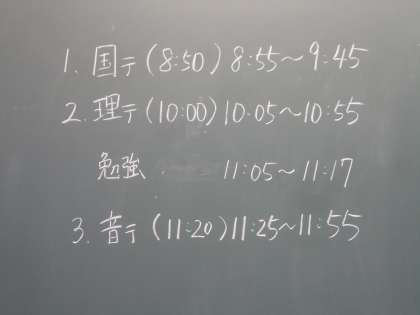 1. 国テ(8:50) 8:55～9:45
2. 理テ(10:00) 10:05～10:55
勉強 11:05～11:17
3. 音テ(11:20) 11:25～11:55